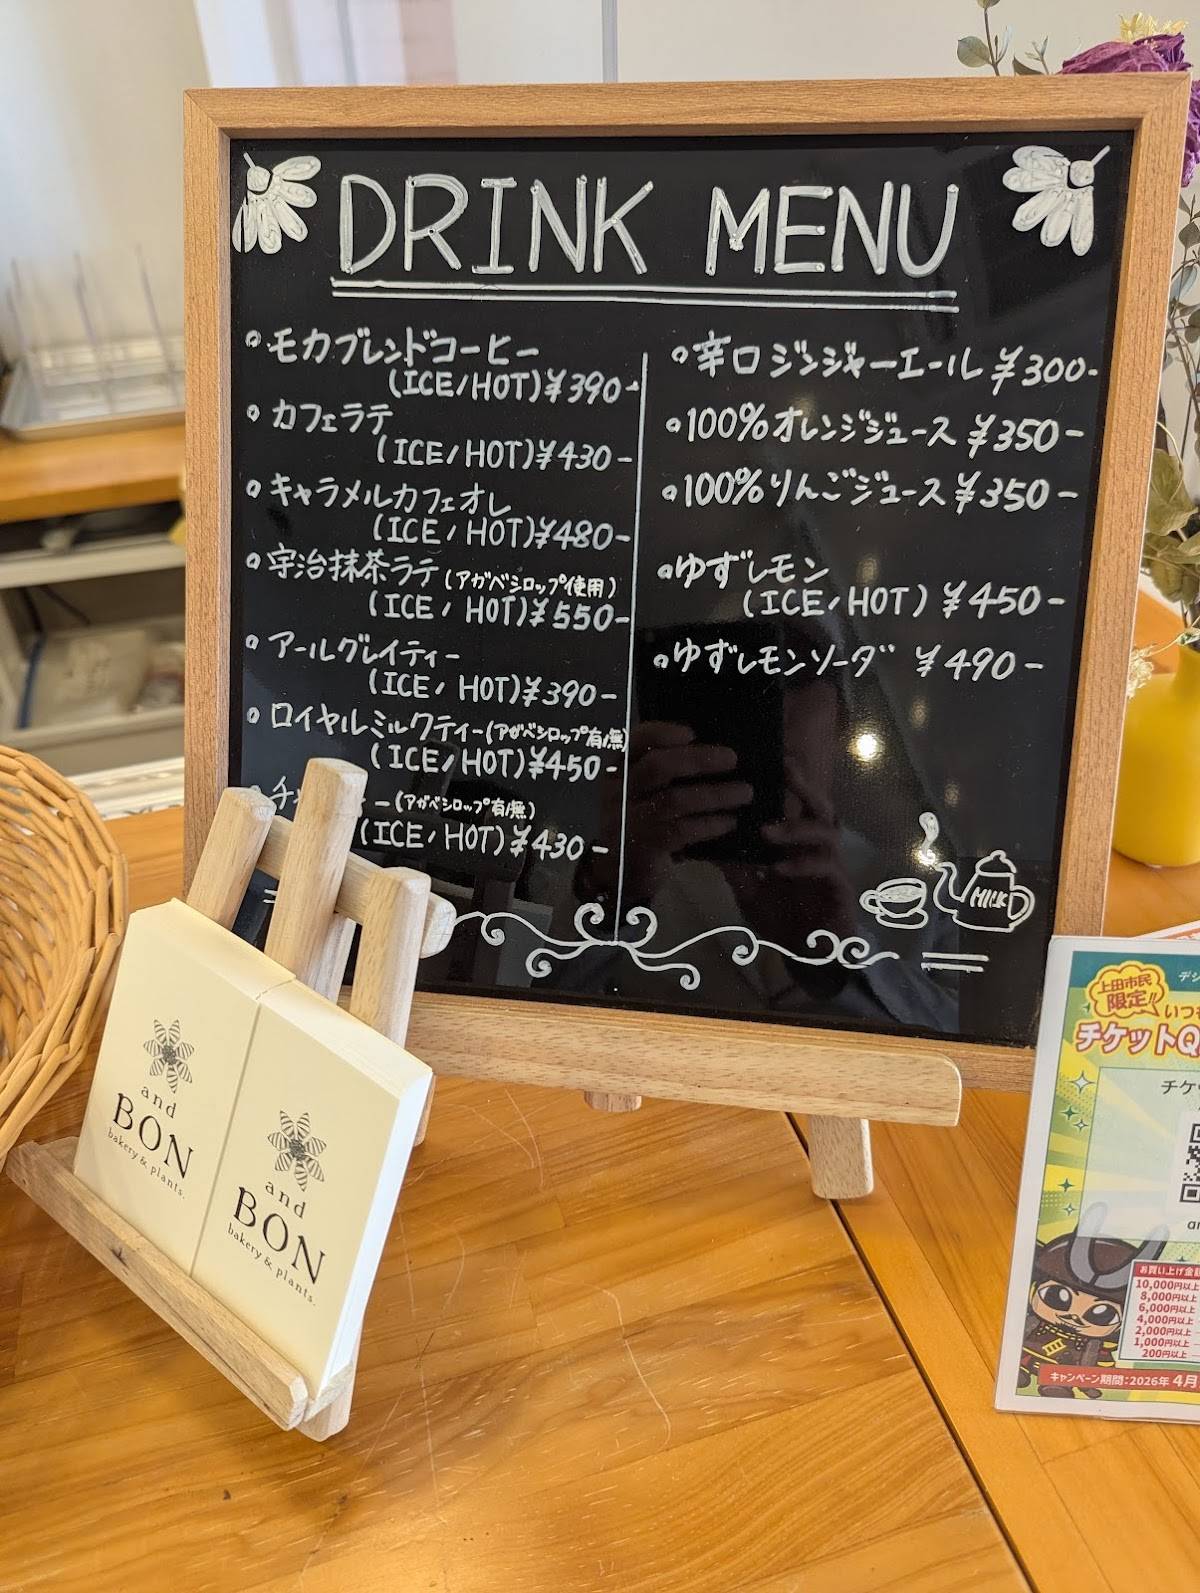 DRINK MENU
モカブレンドコーヒー
(ICE/HOT)¥390-
カフェラテ
(ICE/HOT)¥430-
キャラメルカフェオレ
(ICE/HOT)¥480-
宇治抹茶ラテ(アガベシロップ使用)
(ICE/HOT)¥550-
アールグレイティー
(ICE/HOT)¥390-
ロイヤルミルクティー(アガベシロップ有/無)
(ICE/HOT)¥450-
ー(アガベシロップ有/無)
(ICE/HOT)¥430-
辛口ジンジャーエール ¥300-
100%オレンジジュース ¥350-
100%りんごジュース ¥350-
ゆずレモン
(ICE/HOT) ¥450-
ゆずレモンソーダ ¥490-
MILK
and
BON
bakery & plants.
and
BON
bakery & plants.
上田市民
限定!!
いつ
チケットQ
チケ
お買い上げ金
10,000円以上
8,000円以上
6,000円以上
4,000円以上
2,000円以上
1,000円以上
200円以上
キャンペーン期間:2026年 4月